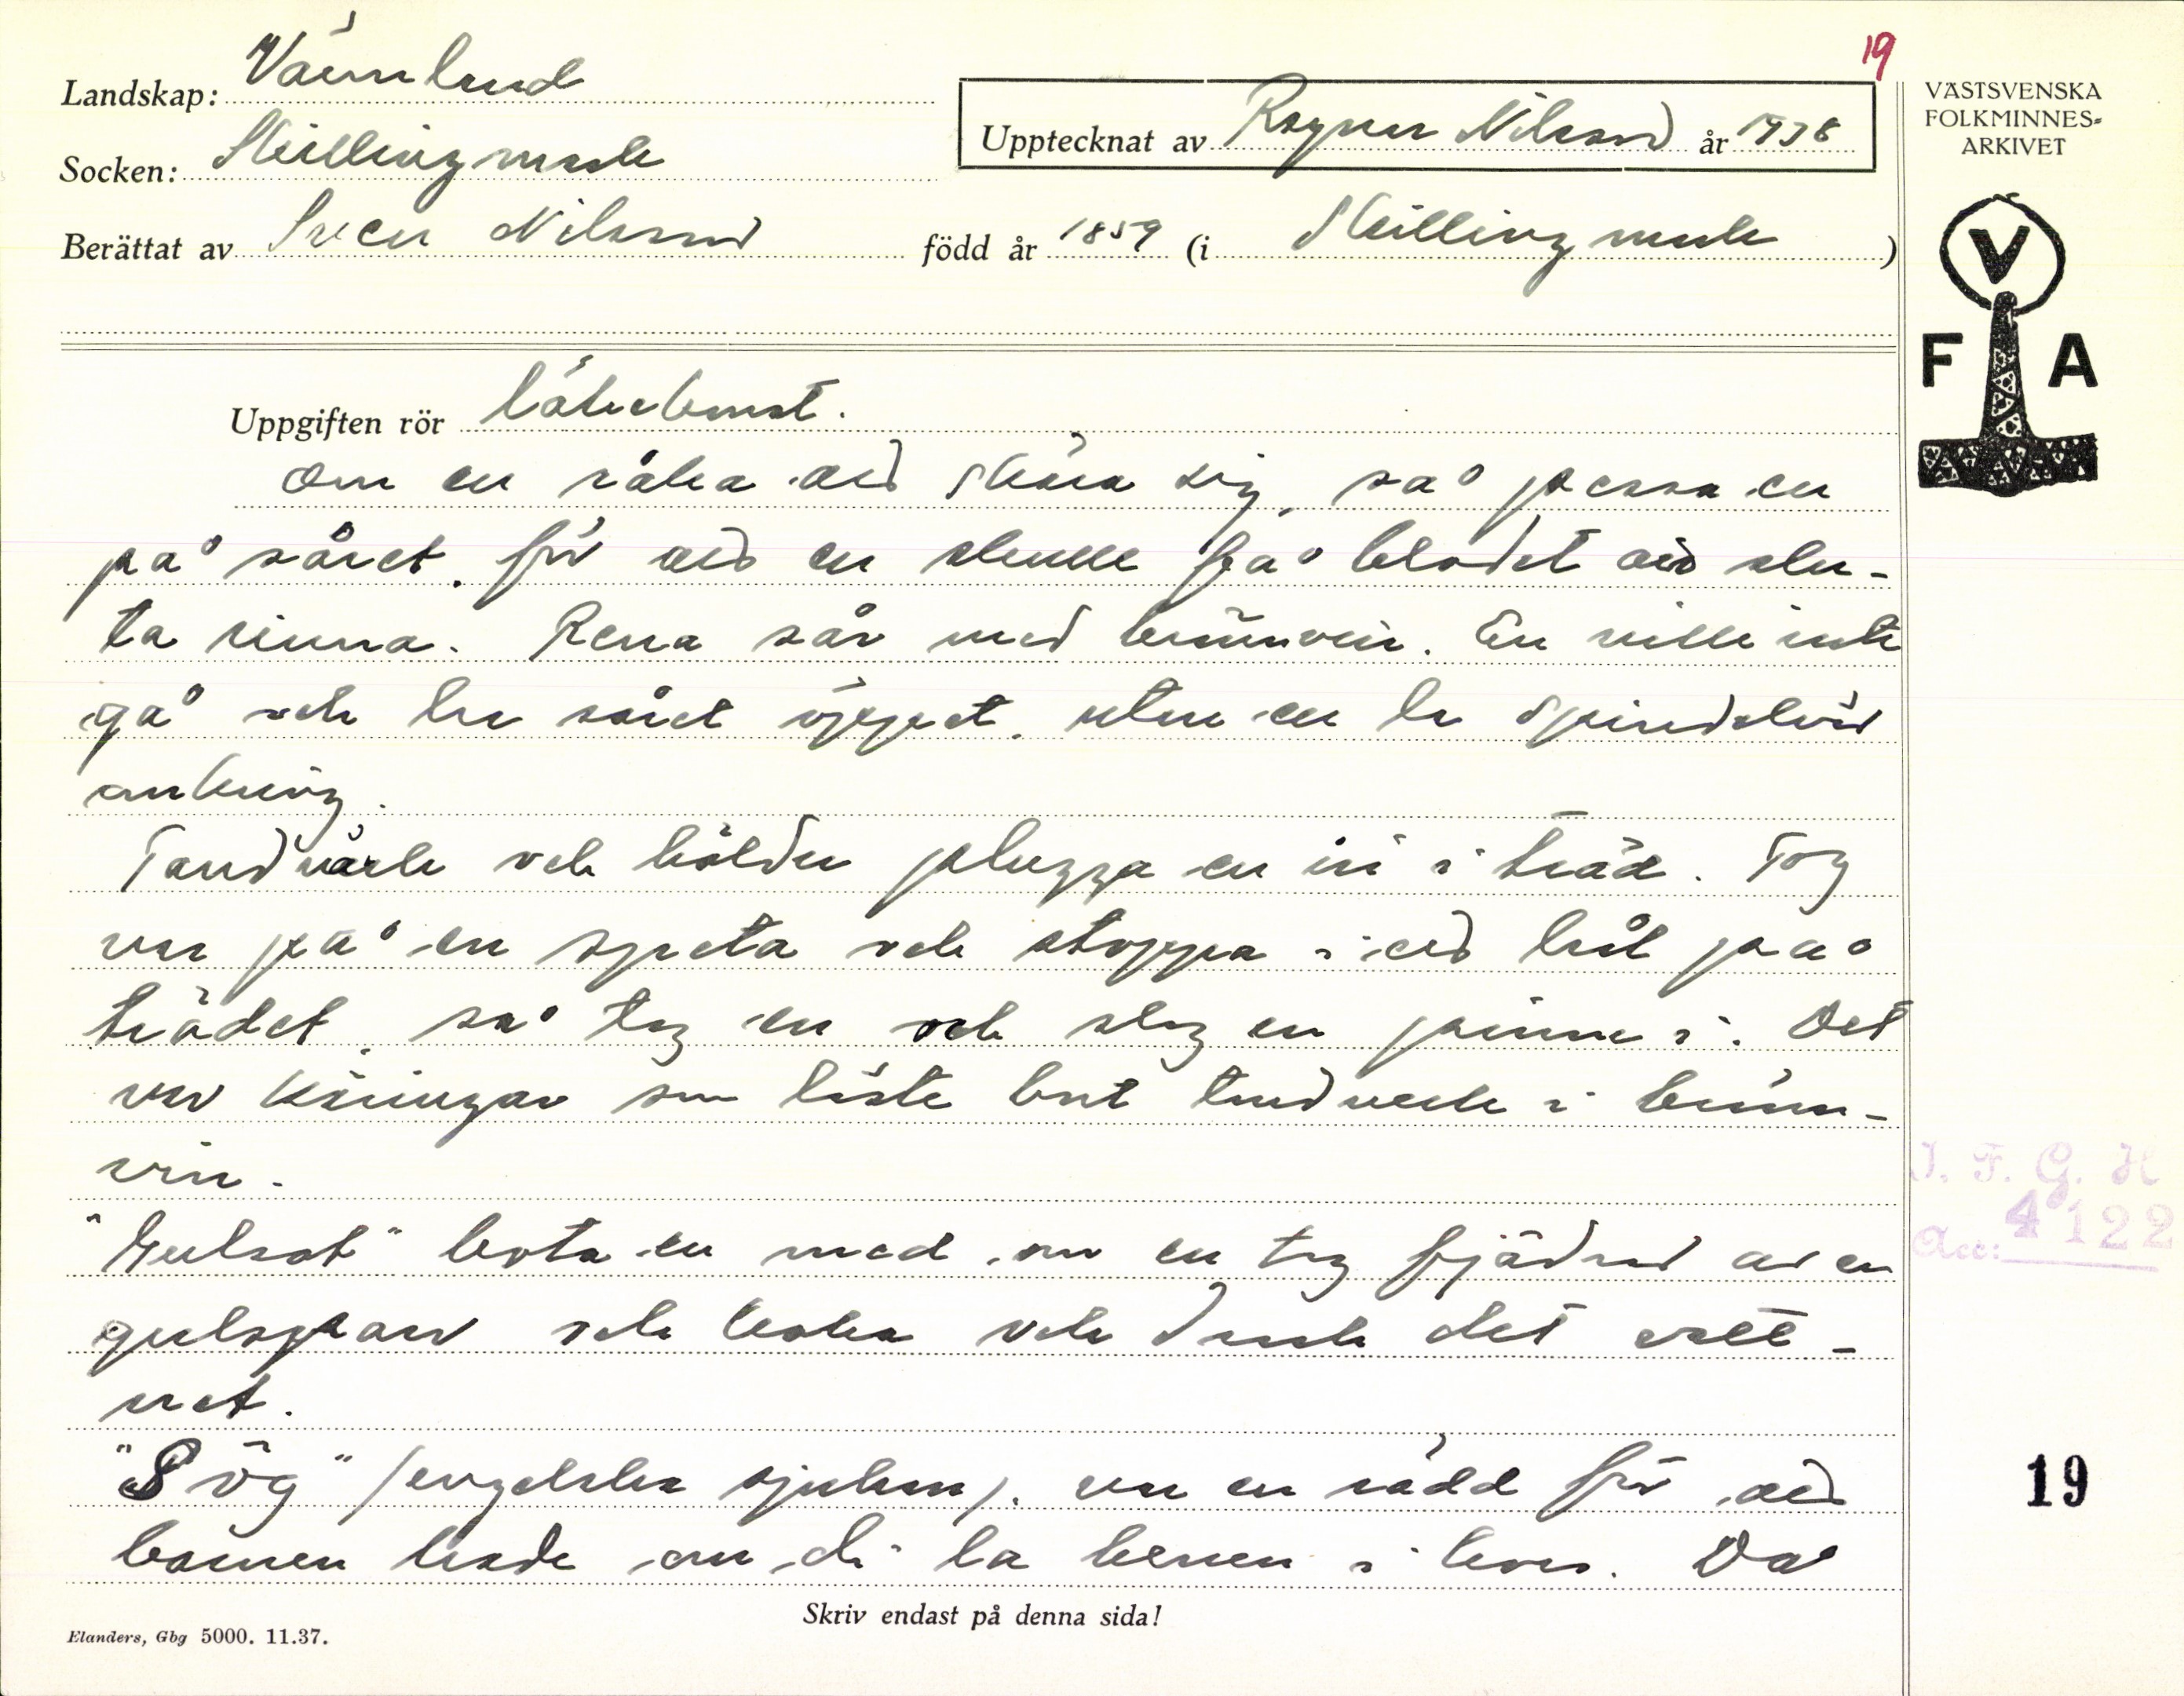 19
Landskap: Värmland
Socken: Skillingmark
Upptecknat av Ragnar Nilsson år 1938
Berättat av Sven Nilsson född år 1859 (i Skillingmark)
VÄSTSVENSKA
FOLKMINNES-
ARKIVET
V
F A
Uppgiften rör Läkekonst.
Om en råka ad skära sig, så pessa en
på såret. för ad en skulle få blodet ad slu-
ta rinna. Rena sår med brännvin. En ville inte
gå och ha såret öppet. utan en la spindelväv
omkring.
Tandvärk och bölder plugga en in i träd. Tog
var på en speta och stoppa i ed hål på
trädet, så tog en och slog en pinne i. Det
var käringar som läste bort tandverk i bränn-
vin.
"Gulsot" bota en med om en tog fjädrar av en
gulsparv och koka och drack det vatt-
net.
"Svög" (engelska sjukan). var en rädd för ad
barnen hade om di la benen i kors. Då
Skriv endast på denna sida!
Elanders, Gbg 5000. 11.37.
I. F. G. H
Acc: 4122
19